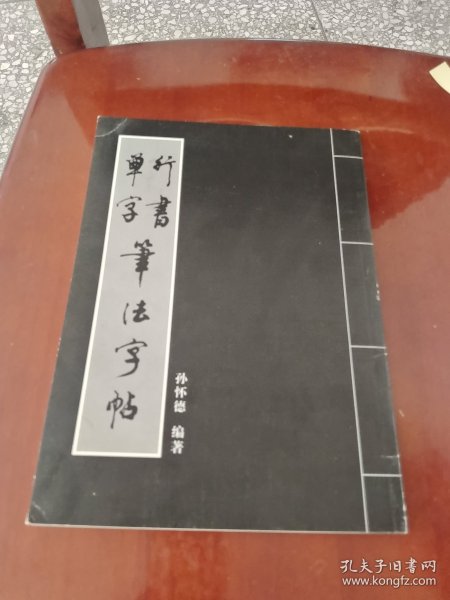 行書
單字
筆法字帖
孙怀德 编著
孔夫子旧书网
www.kongfz.com